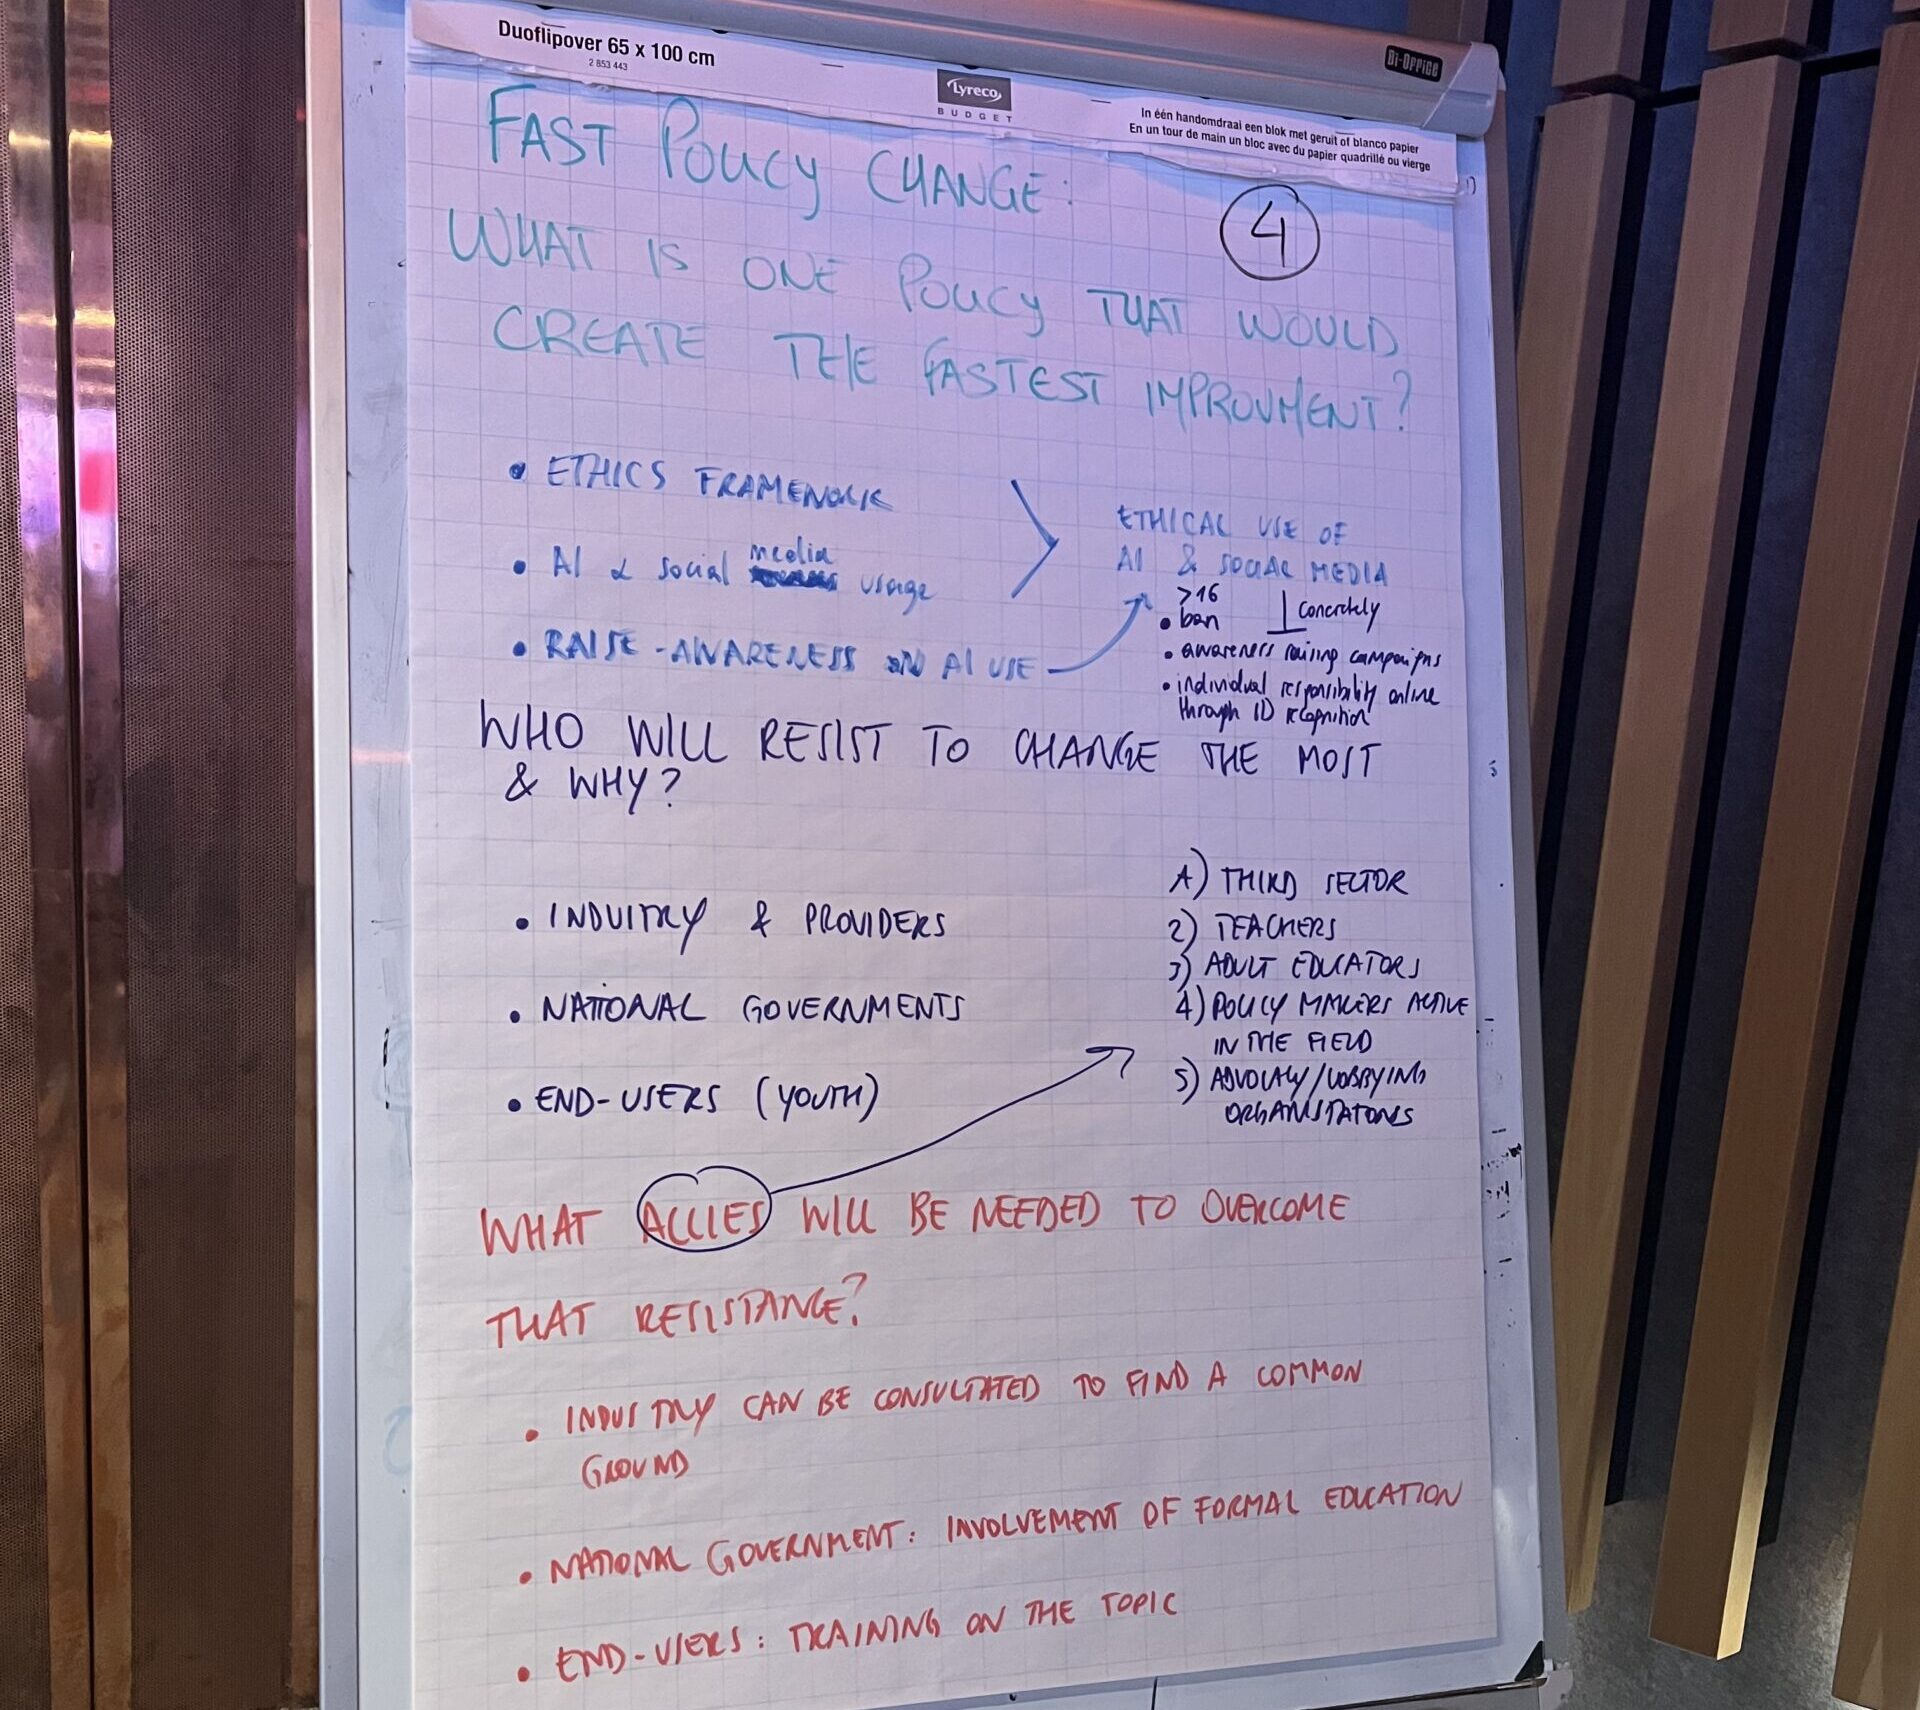 Duoflipover 65 x 100 cm
2 853 443
Lyreco
BUDGET
Bi-Office
In één handomdraai een blok met geruit of blanco papier
En un tour de main un bloc avec du papier quadrillé ou vierge
FAST POLICY CHANGE:
4
WHAT IS ONE POLICY THAT WOULD
CREATE THE FASTEST IMPROVMENT?
• ETHICS FRAMEWORK
• AI & social media usage
• RAISE-AWARENESS ON AI USE
ETHICAL USE OF
AI & SOCIAL MEDIA
>16
• ban
concretely
• awareness raising campaigns
• individual responsibility online
through ID recognition
WHO WILL RESIST TO CHANGE THE MOST
& WHY?
• INDUSTRY & PROVIDERS
• NATIONAL GOVERNMENTS
• END-USERS (YOUTH)
1) THIRD SECTOR
2) TEACHERS
3) ADULT EDUCATORS
4) POLICY MAKERS ACTIVE
IN THE FIELD
5) ADVOCACY/LOBBYING
ORGANISTATONS
WHAT ALLIES WILL BE NEEDED TO OVERCOME
THAT RESISTANCE?
• INDUSTRY CAN BE CONSULTATED TO FIND A COMMON
GROUND
• NATIONAL GOVERNMENT: INVOLVEMENT OF FORMAL EDUCATION
• END-USERS: TRAINING ON THE TOPIC